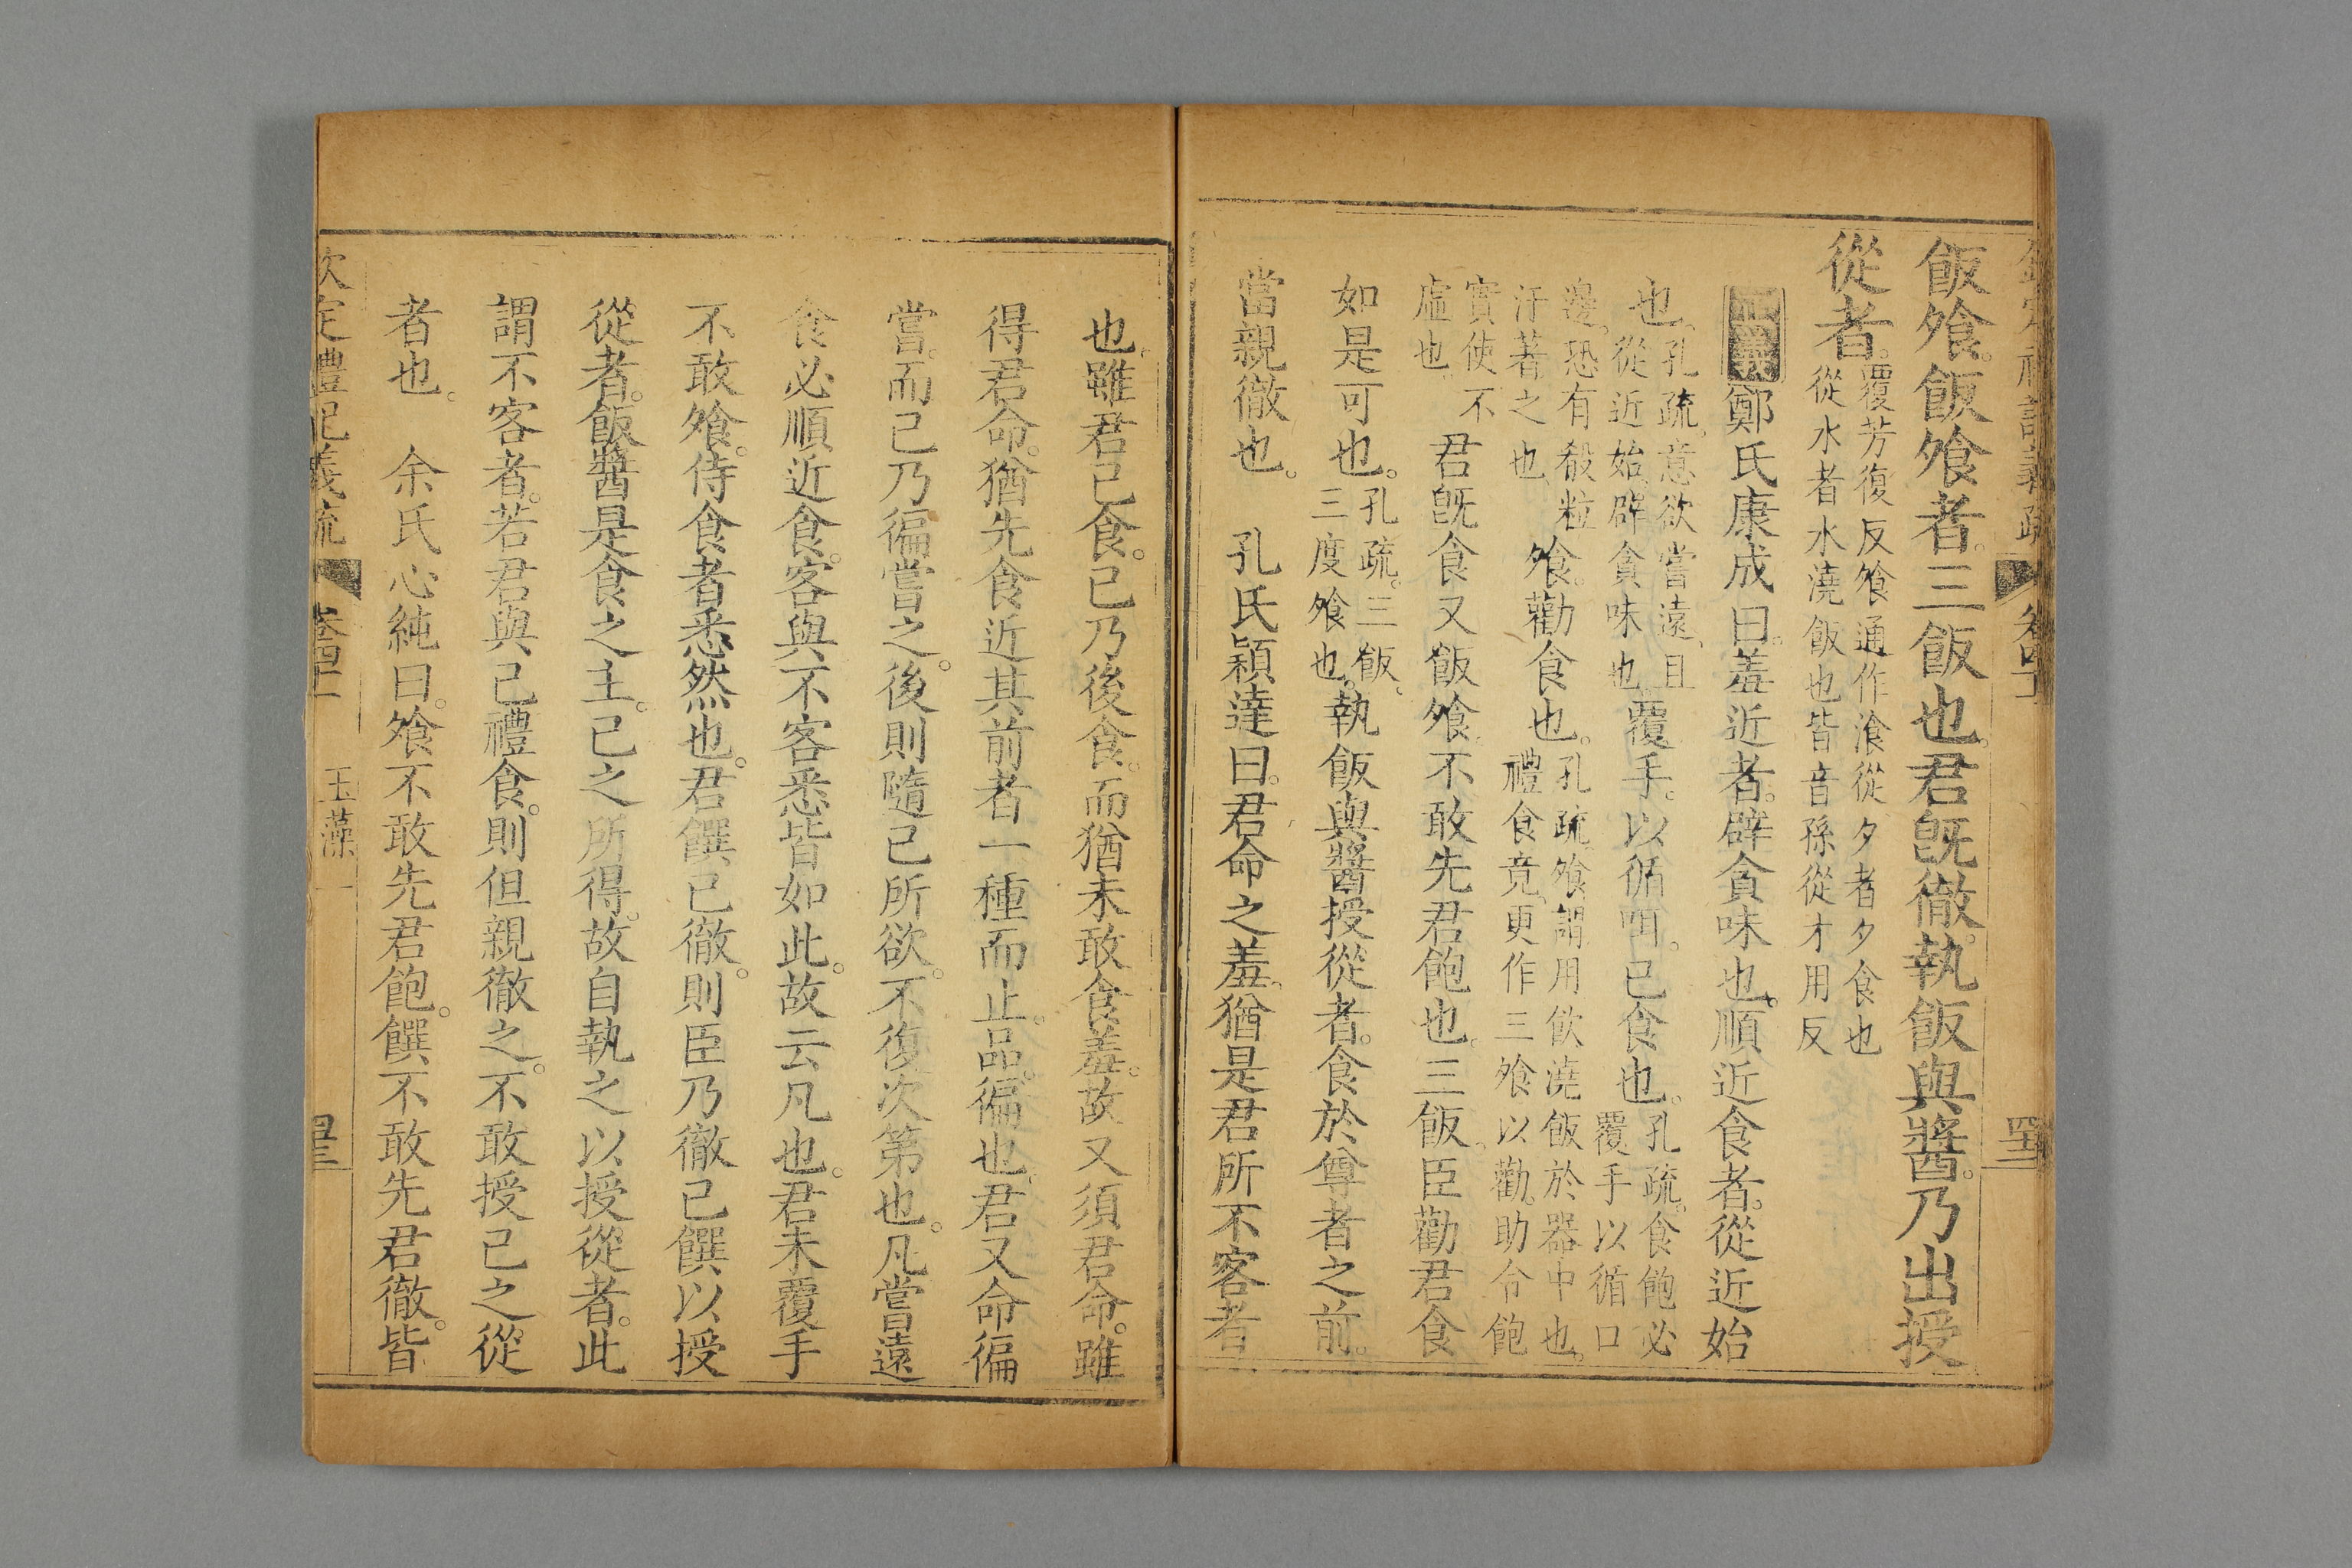 飯飧。飯飧者。三飯也。君旣徹。執飯與醬。乃出授
從者。覆芳復反飧通作湌從夕者夕食也
從水者水澆飯也皆音孫從才用反
正義鄭氏康成曰。羞近者。辟貪味也。順近食者。從近始
也。孔疏。意欲嘗遠。且
從近始。辟貪味也。覆手。以循咡。已食也。孔疏。食飽必
覆手以循口
邊。恐有殽粒
汙著之也。飧。勸食也。孔疏。飧。謂用飮澆飯於器中也。
禮食竟。更作三飧以勸。助令飽
實使不
虛也君旣食又飯飧。不敢先君飽也。三飯。臣勸君食
如是可也。孔疏。三飯。
三度飧也。執飯與醬授從者。食於尊者之前。
當親徹也。　孔氏穎達曰。君命之羞。猶是君所不客者
也。雖君已食。已乃後食。而猶未敢食羞。故又須君命。雖
得君命。猶先食近其前者一種而止。品。徧也。君又命徧
嘗。而己乃徧嘗之。後則隨己所欲。不復次第也。凡嘗遠
食必順近食。客與不客悉皆如此。故云凡也。君未覆手
不敢飧。侍食者悉然也。君饌已徹。則臣乃徹己饌以授
從者。飯醬是食之主。己之所得。故自執之以授從者。此
謂不客者。若君與己禮食。則但親徹之。不敢授己之從
者也。　余氏心純曰。飧不敢先君飽。饌不敢先君徹。皆
欽定禮記義疏　卷四十一　玉藻一　四三